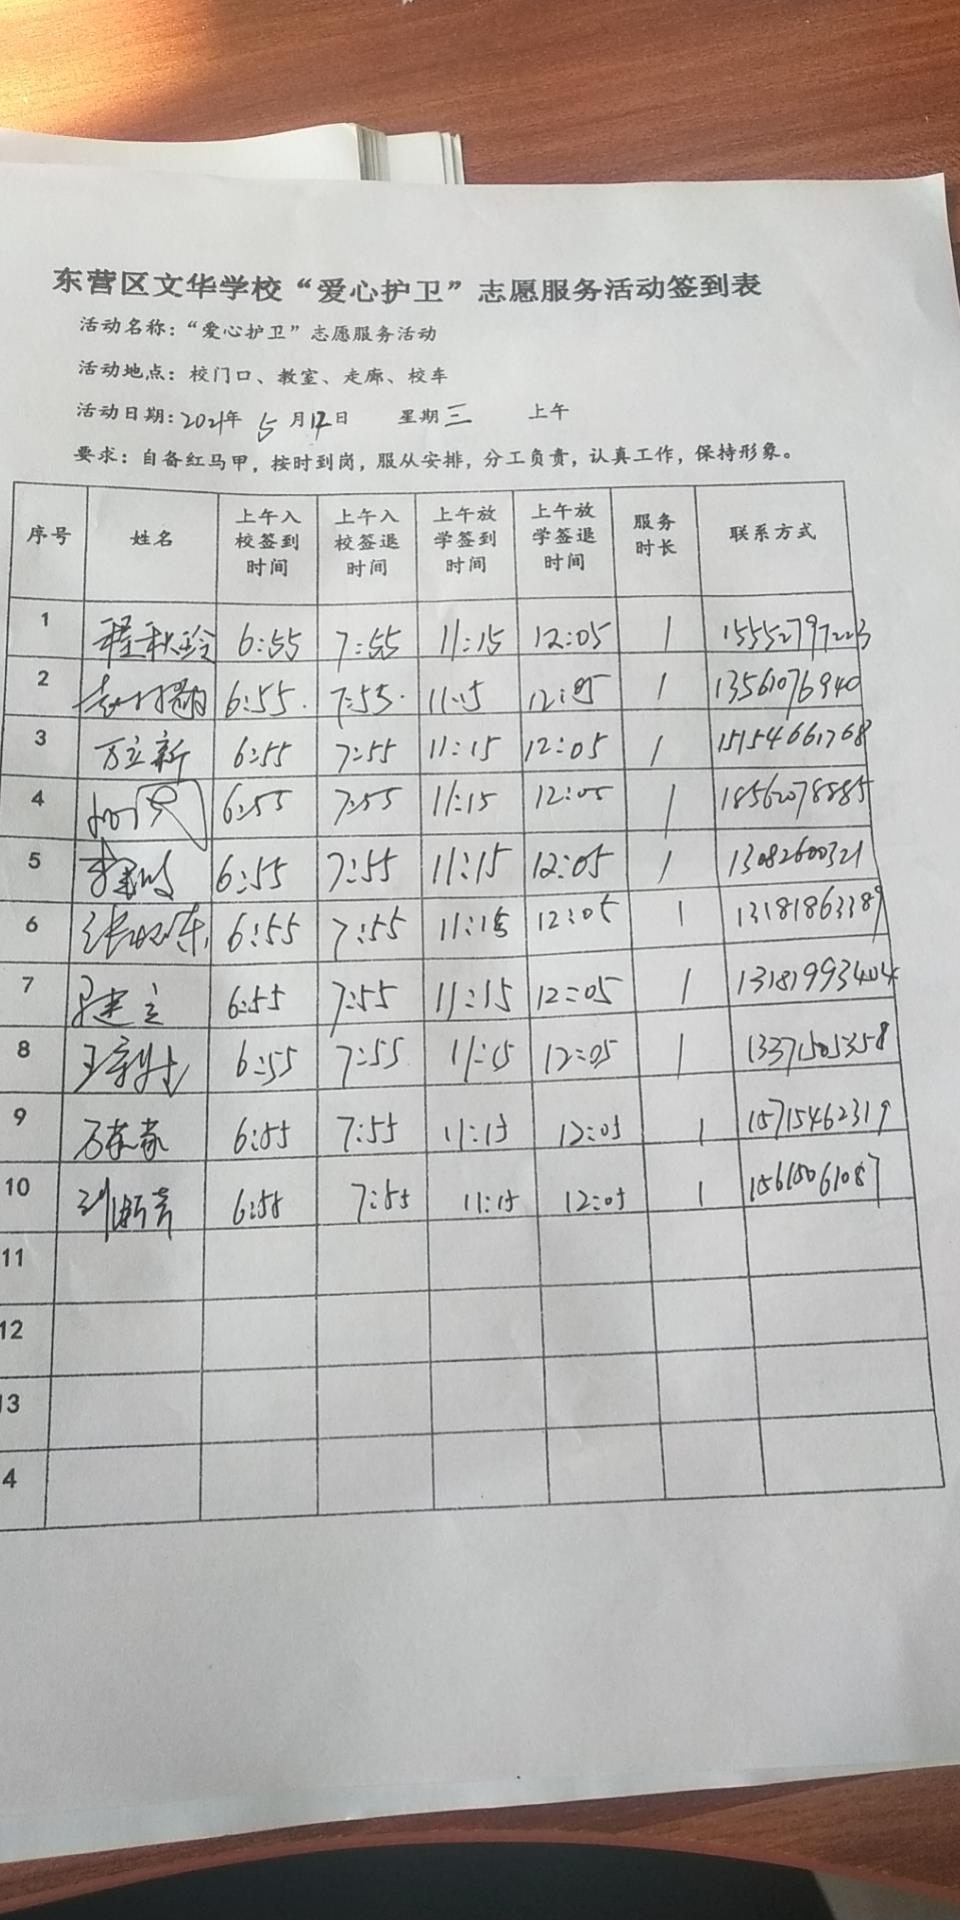 东营区文华学校“爱心护卫”志愿服务活动签到表
活动名称：“爱心护卫”志愿服务活动
活动地点：校门口、教室、走廊、校车
活动日期：2021年 5月12日 星期三 上午
要求：自备红马甲，按时到岗，服从安排，分工负责，认真工作，保持形象。
序号 姓名 上午入校签到时间 上午入校签退时间 上午放学签到时间 上午放学签退时间 服务时长 联系方式
1 程秋玲 6:55 7:55 11:15 12:05 1 15552797223
2 6:55 7:55 11:15 12:05 1 13561076940
3 万立新 6:55 7:55 11:15 12:05 1 15154661768
4 6:55 7:55 11:15 12:05 1 18562078885
5 6:55 7:55 11:15 12:05 1 13082600321
6 6:55 7:55 11:15 12:05 1 13181863389
7 6:55 7:55 11:15 12:05 1 13181993404
8 6:55 7:55 11:15 12:05 1 13371505358
9 6:55 7:55 11:15 12:05 1 15715462319
10 6:55 7:55 11:15 12:05 1 15615061087
11
12
13
4